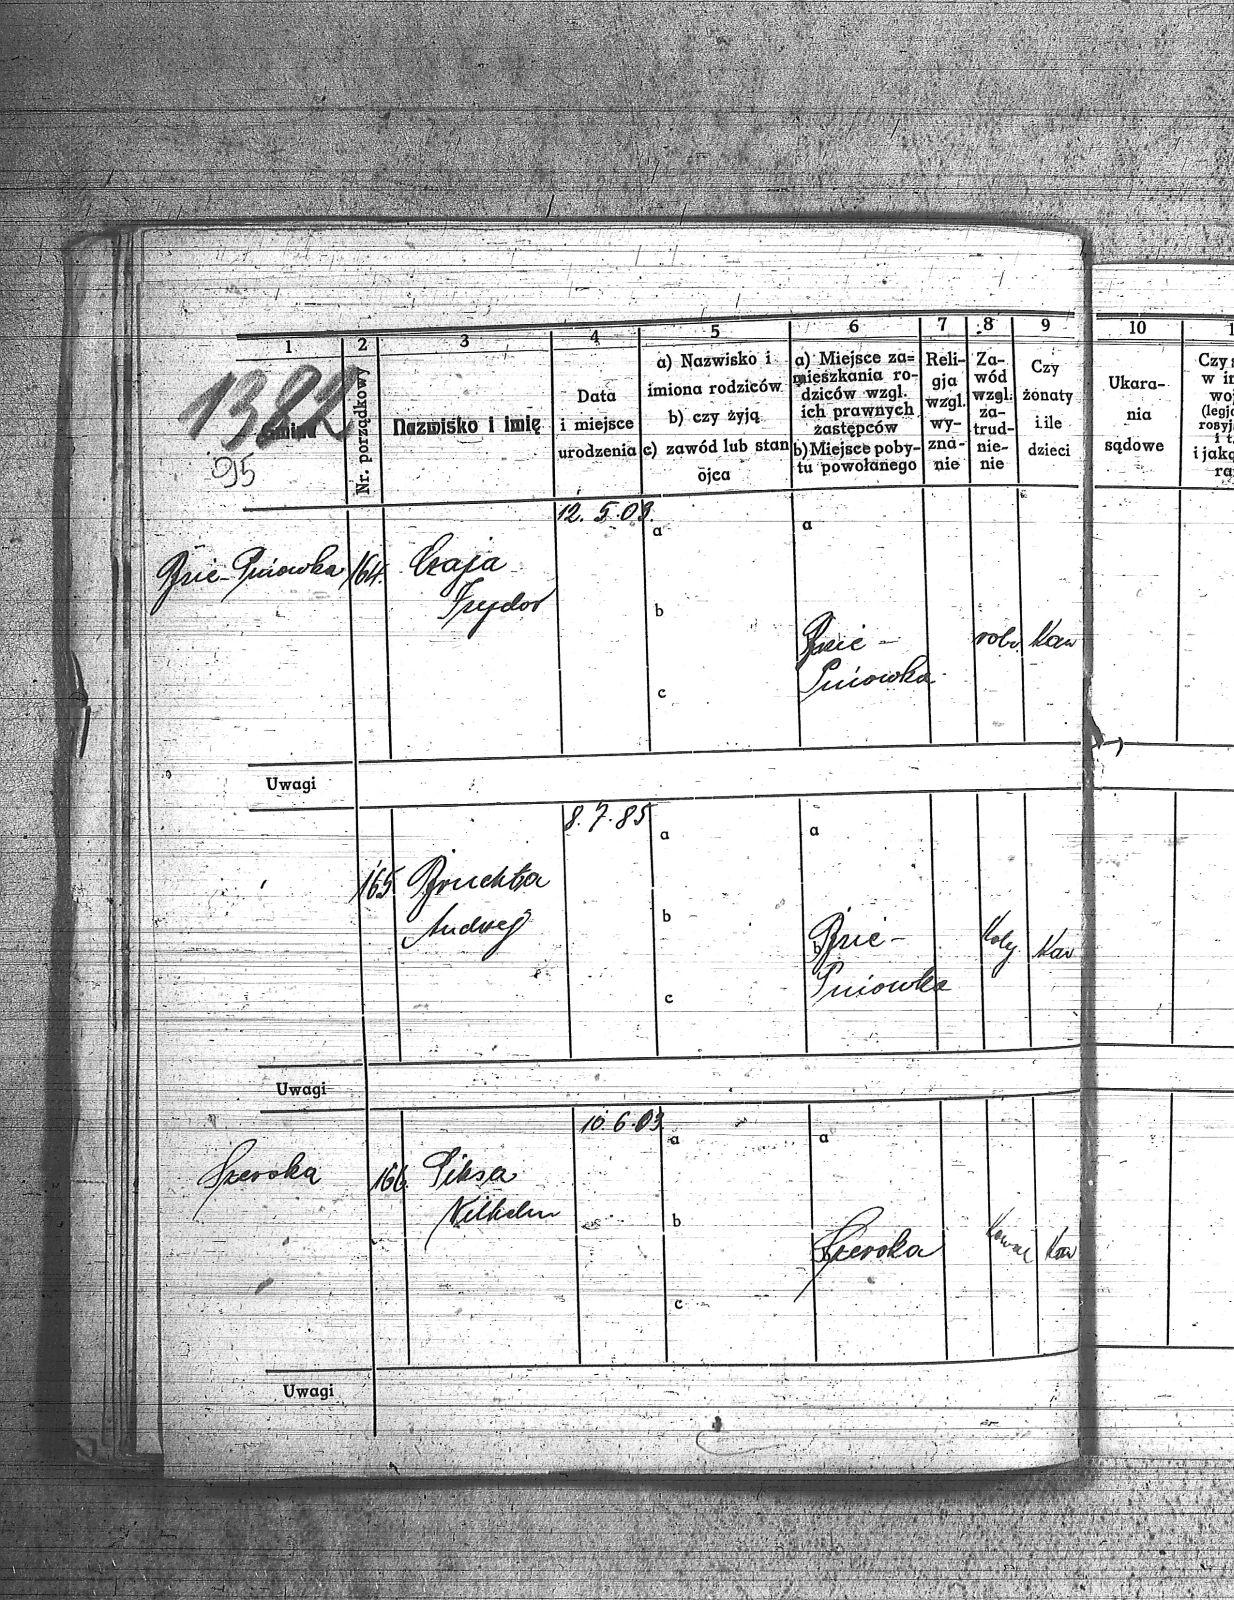 1 2 3 4 5 6 7 8 9 10
1382
95
Gmina
Nr. porządkowy
Nazwisko i imię
Data
i miejsce
urodzenia
a) Nazwisko i
imiona rodziców
b) czy żyją
c) zawód lub stan
ojca
a) Miejsce za=
mieszkania ro-
dziców wzgl.
ich prawnych
zastępców
b) Miejsce poby-
tu powołanego
Reli-
gja
wzgl.
wy-
zna-
nie
Za-
wód
wzgl.
za-
trud-
nie-
nie
Czy
żonaty
i ile
dzieci
Ukara-
nia
sądowe
12. 5. 03.
a a
Bzie-Pniowka 164. Czaja
Izydor
b
Bzie-
Pniowka
rob. Kaw
c
Uwagi
8. 7. 85
a a
165. Bruchta
Andrzej
b b
Bzie-
Pniowka
Kaw
c
Uwagi
10. 6. 03
a a
Szeroka 166. Piksa
Wilhelm
b
Szeroka
Kowal Kaw
c
Uwagi